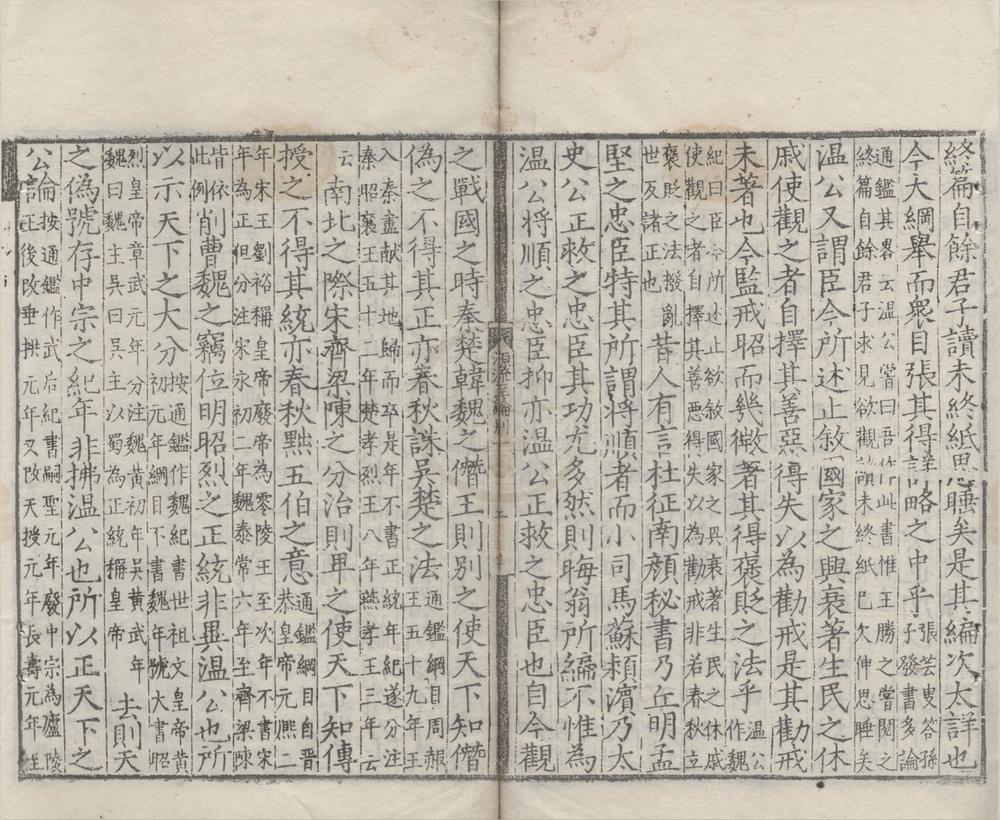 終篇自餘君子讀未終紙思睡矣是其編次太詳也
今大綱舉而衆目張其得詳略之中乎
張芸叟答孫
子發書多論
通鑑其畧云温公嘗曰吾作此書惟王勝之嘗閱之
終篇自餘君子求見欲觀讀未終紙已欠伸思睡矣
温公又謂臣今所述止敘國家之興衰著生民之休
戚使觀之者自擇其善惡得失以為勸戒是其勸戒
未著也今監戒昭而幾微著其得褒貶之法乎
温公
作魏
紀曰臣今所述止欲敘國家之興衰著生民之休戚
使觀之者自擇其善惡得失以為勸戒非若春秋立
褒貶之法撥亂
世反諸正也
昔人有言杜征南顔秘書乃丘明孟
堅之忠臣特其所謂將順者而小司馬蘇頴濱乃太
史公正救之忠臣其功尤多然則晦翁所編不惟為
温公将順之忠臣抑亦温公正救之忠臣也自今觀
源流至論別二
之戰國之時秦楚韓魏之僭王則别之使天下知僭
偽之不得其正亦春秋誅吳楚之法
通鑑綱目周赧
王五十九年王
入秦盡献其地歸而卒是年不書正統年紀遂分注
秦昭襄王五十二年楚孝烈王八年燕孝王三年云
云
南北之際宋齊梁陳之分治則卑之使天下知傳
授之不得其統亦春秋黜五伯之意
通鑑綱目自晋
恭皇帝元熈二
年宋王劉裕稱皇帝廢帝為零陵王至次年不書宋
年為正但分注宋永初二年魏泰常六年至齊梁陳
皆依
此例
削曹魏之竊位明昭烈之正統非異温公也所
以示天下之大分
按通鑑作魏紀書世祖文皇帝黄
初元年綱目不書魏年號大書昭
烈皇帝章武元年分注魏黄初年吳黄武年
魏曰魏主吳曰吳主以蜀為正統稱皇帝
去則天
之偽號存中宗之紀年非拂温公也所以正天下之
公論
按通鑑作武后紀書嗣聖元年廢中宗為廬陵
王後改垂拱元年又改天授元年長壽元年至